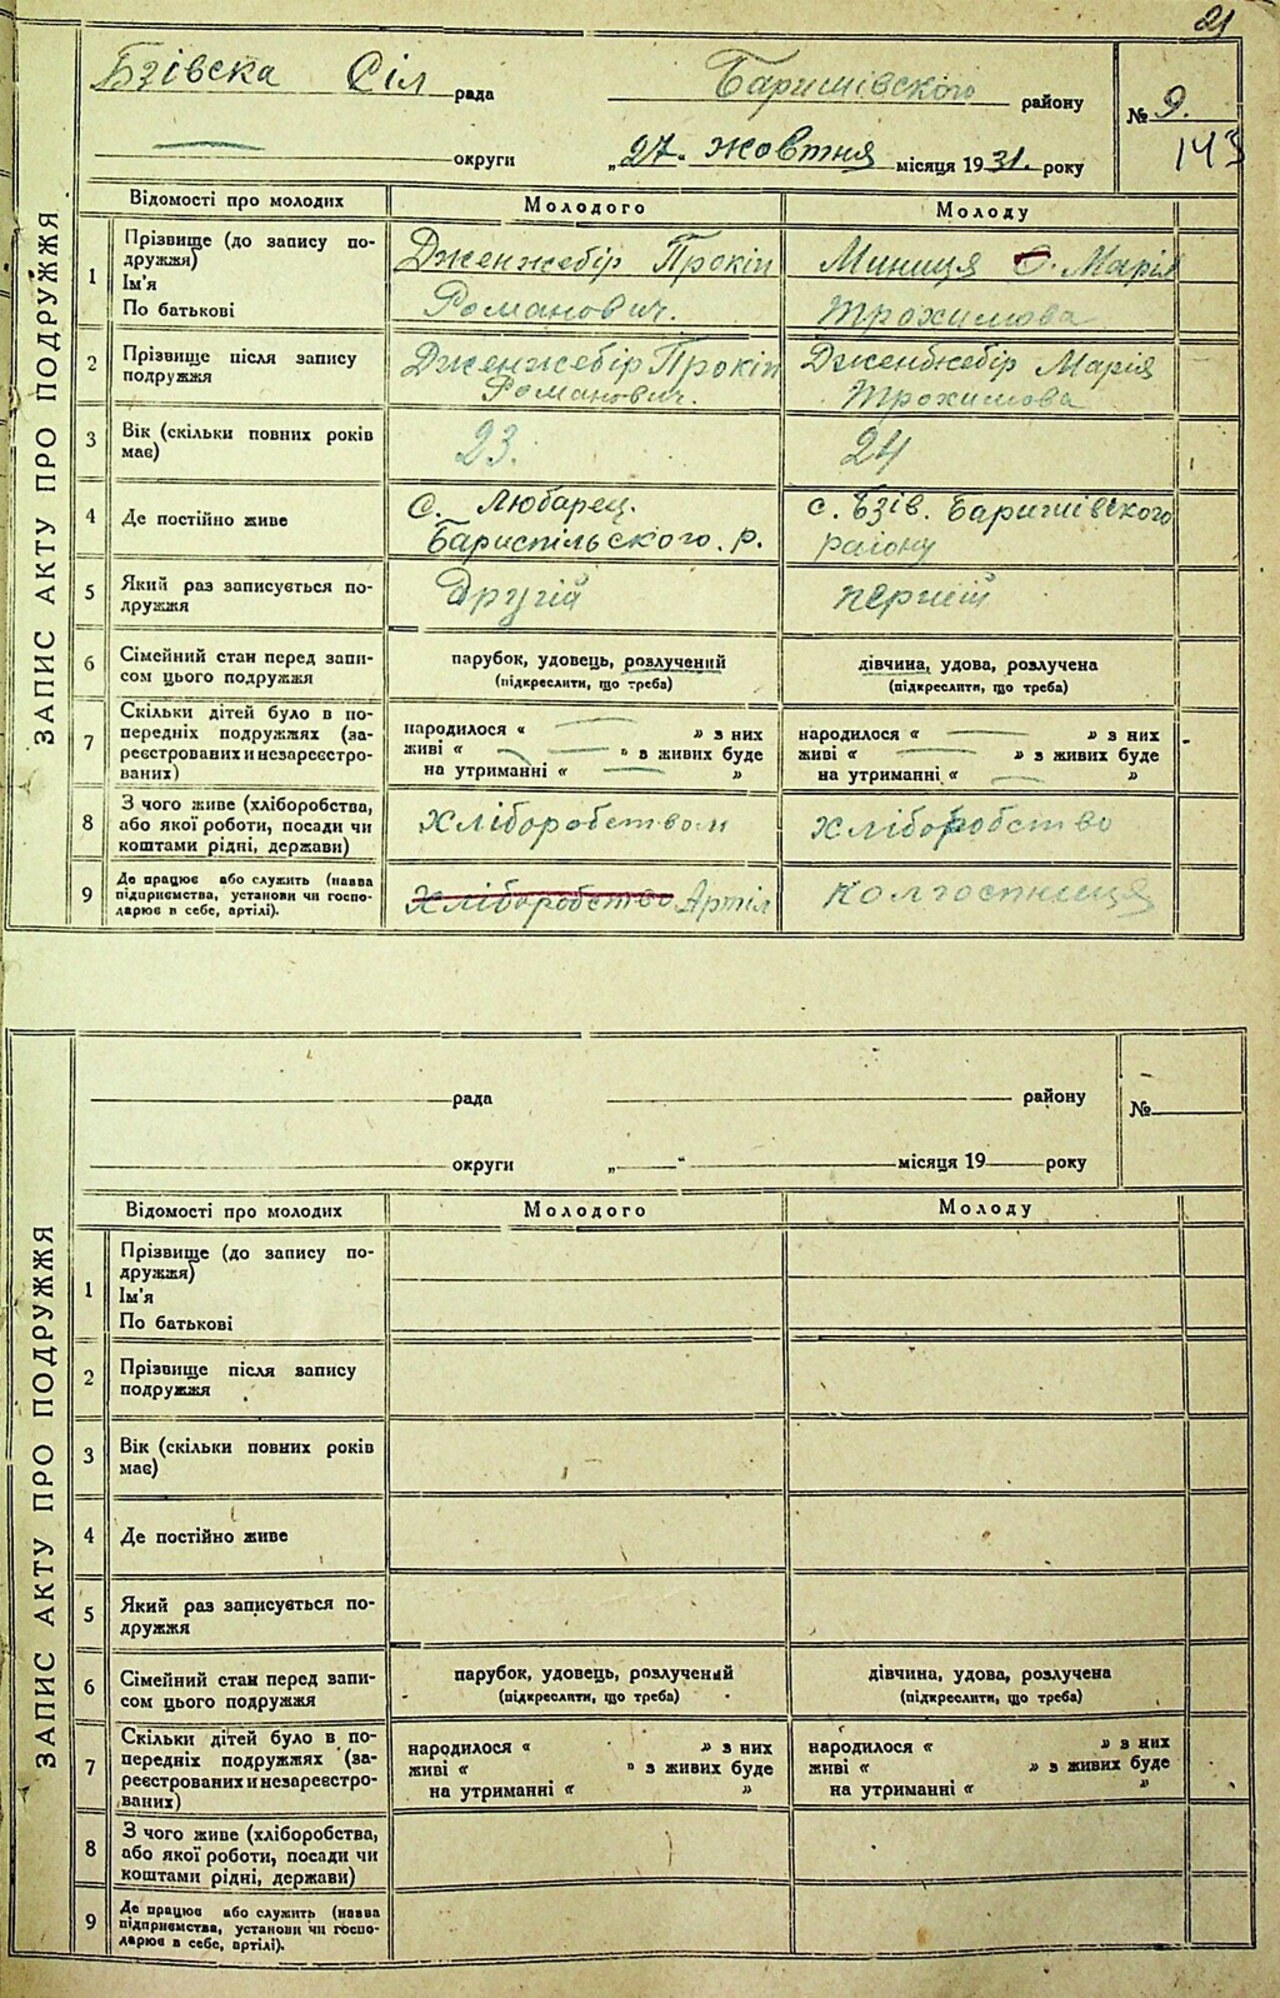 21
Бзівска Сіл рада Баришівского району № 9.
143
округи „27" жовтня місяця 1931. року
ЗАПИС АКТУ ПРО ПОДРУЖЖЯ
Відомості про молодих Молодого Молоду
1 Прізвище (до запису по-
дружжя)
Ім'я
По батькові
Дженжебір Прокіп
Романович.
Миниця О. Марія
Трохимова
2 Прізвище після запису
подружжя
Дженжебір Прокіп
Романович.
Дженбжебір Марія
Трохимова
3 Вік (скільки повних років
має)
23.
24
4 Де постійно живе
С. Любарец.
Бариспільського. р.
с. Бзів. Баришівского
району
5 Який раз записується по-
дружжя
Другій
перший
6 Сімейний стан перед запи-
сом цього подружжя
парубок, удовець, розлучений
(підкреслити, що треба)
дівчина, удова, розлучена
(підкреслити, що треба)
7 Скільки дітей було в по-
передніх подружжях (за-
реєстрованих и незареєстро-
ваних)
народилося « » з них
живі « » з живих буде
на утриманні « »
народилося « » з них
живі « » з живих буде
на утриманні « »
8 З чого живе (хліборобства,
або якої роботи, посади чи
коштами рідні, держави)
Хліборобством
хліборобство
9 Де працює або служить (назва
підприємства, установи чи госпо-
дарює в себе, артілі).
Хліборобство Артіл
колгоспниця
рада району №
округи „ " місяця 19 року
ЗАПИС АКТУ ПРО ПОДРУЖЖЯ
Відомості про молодих Молодого Молоду
1 Прізвище (до запису по-
дружжя)
Ім'я
По батькові
2 Прізвище після запису
подружжя
3 Вік (скільки повних років
має)
4 Де постійно живе
5 Який раз записується по-
дружжя
6 Сімейний стан перед запи-
сом цього подружжя
парубок, удовець, розлучений
(підкреслити, що треба)
дівчина, удова, розлучена
(підкреслити, що треба)
7 Скільки дітей було в по-
передніх подружжях (за-
реєстрованих и незареєстро-
ваних)
народилося « » з них
живі « » з живих буде
на утриманні « »
народилося « » з них
живі « » з живих буде
на утриманні « »
8 З чого живе (хліборобства,
або якої роботи, посади чи
коштами рідні, держави)
9 Де працює або служить (назва
підприємства, установи чи госпо-
дарює в себе, артілі).